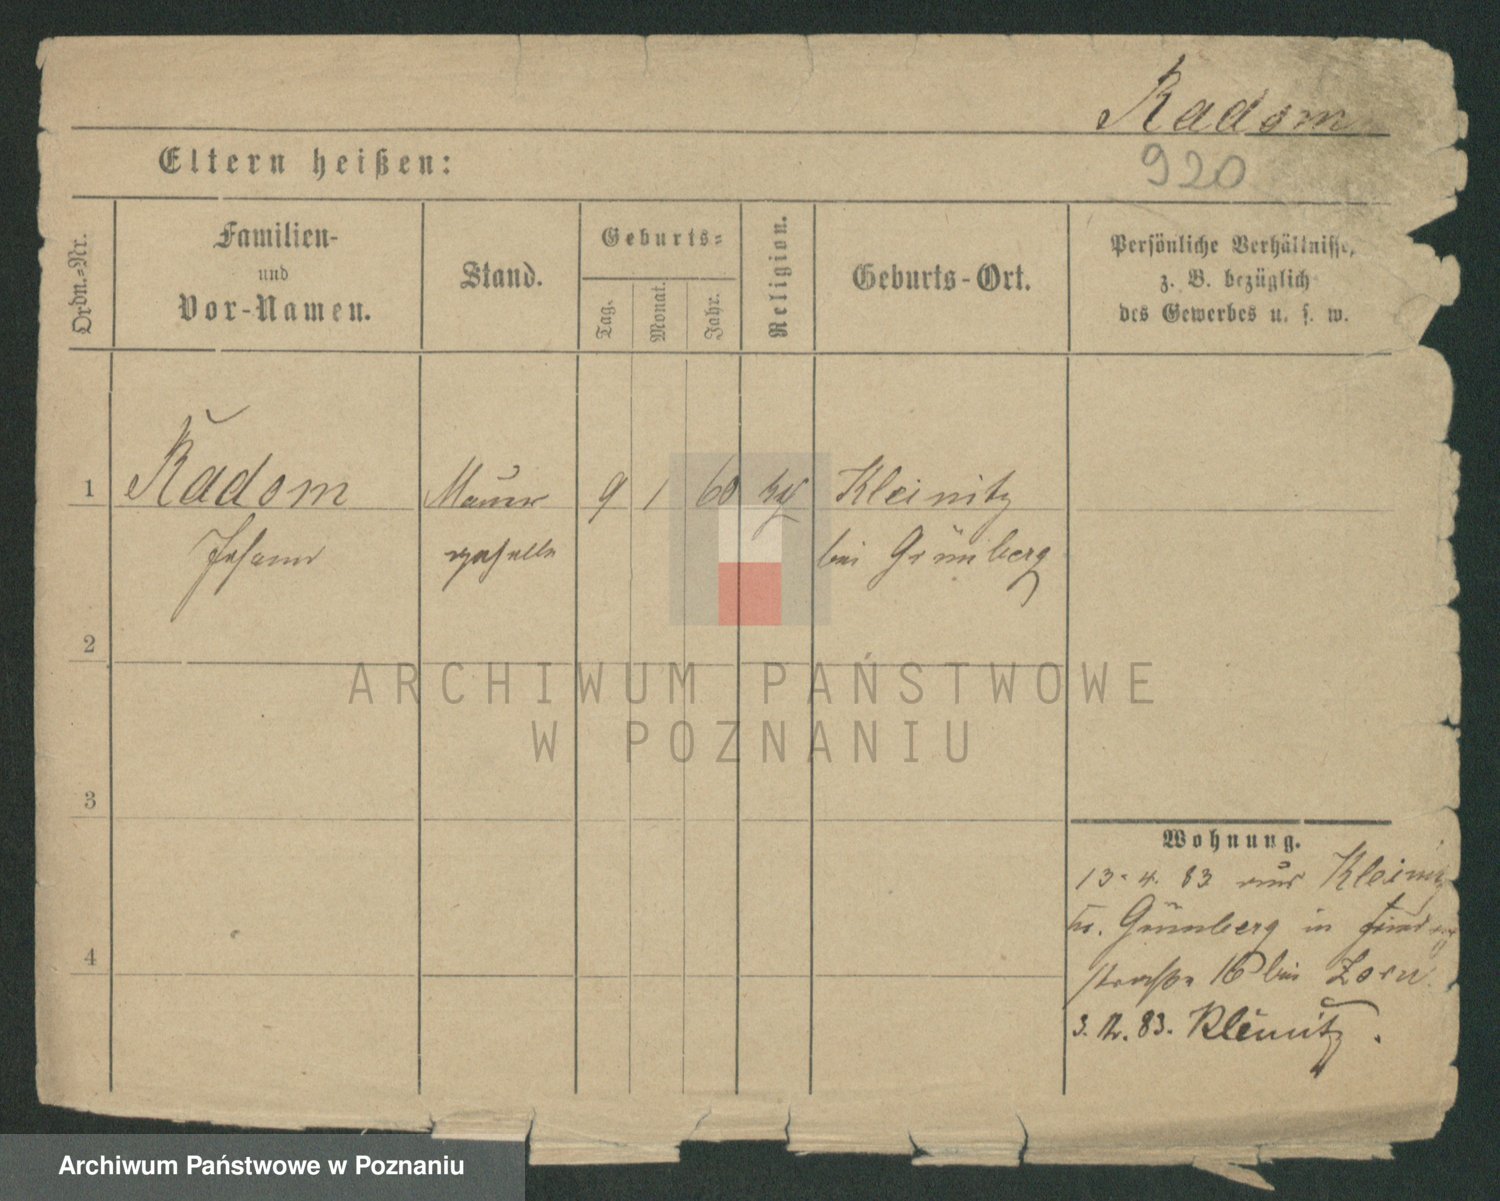 Radom
920
Eltern heißen:
Ordn.-Nr.
Familien-
und
Vor-Namen.
Stand.
Geburts-
Tag.
Monat.
Jahr.
Religion.
Geburts-Ort.
Persönliche Verhältnisse,
z. B. bezüglich
des Gewerbes u. s. w.
1
Radom
Maurer
9
1
60
Kleinitz
Johann
geselle
bei Grünberg
2
3
4
Wohnung.
13. 4. 83 aus Kleinitz
Kr. Grünberg in
straße 16 bei Zorn
3. 12. 83. Kleinitz.
ARCHIWUM PAŃSTWOWE
W POZNANIU
Archiwum Państwowe w Poznaniu